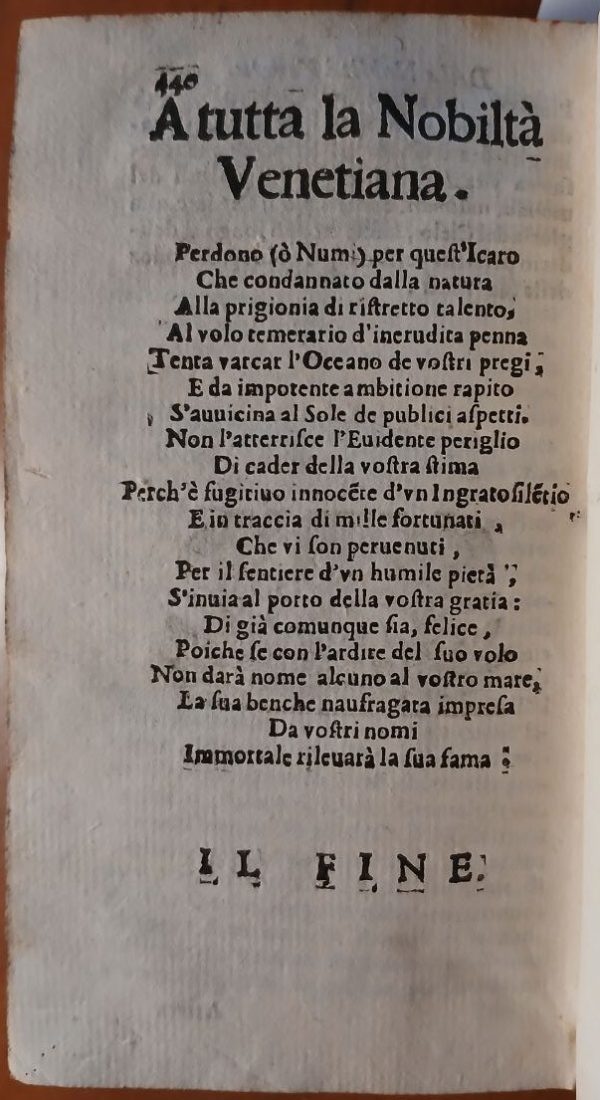 440
A tutta la Nobiltà
Venetiana.
Perdono (ò Numi) per queſt'Icaro
Che condannato dalla natura
Alla prigionia di riſtretto talento,
Al volo temerario d'inerudita penna
Tenta varcar l'Oceano de voſtri pregi,
E da impotente ambitione rapito
S'auuicina al Sole de publici aſpetti.
Non l'atterriſce l'Euidente periglio
Di cader della voſtra ſtima
Perch'è fugitiuo innocẽte d'vn Ingratoſilẽtio
E in traccia di mille fortunati,
Che vi ſon peruenuti,
Per il ſentiere d'vn humile pietà,
S'inuia al porto della voſtra gratia:
Di già comunque ſia, felice,
Poiche ſe con l'ardire del ſuo volo
Non darà nome alcuno al voſtro mare,
La ſua benche naufragata impreſa
Da voſtri nomi
Immortale rileuarà la ſua fama:
IL FINE.